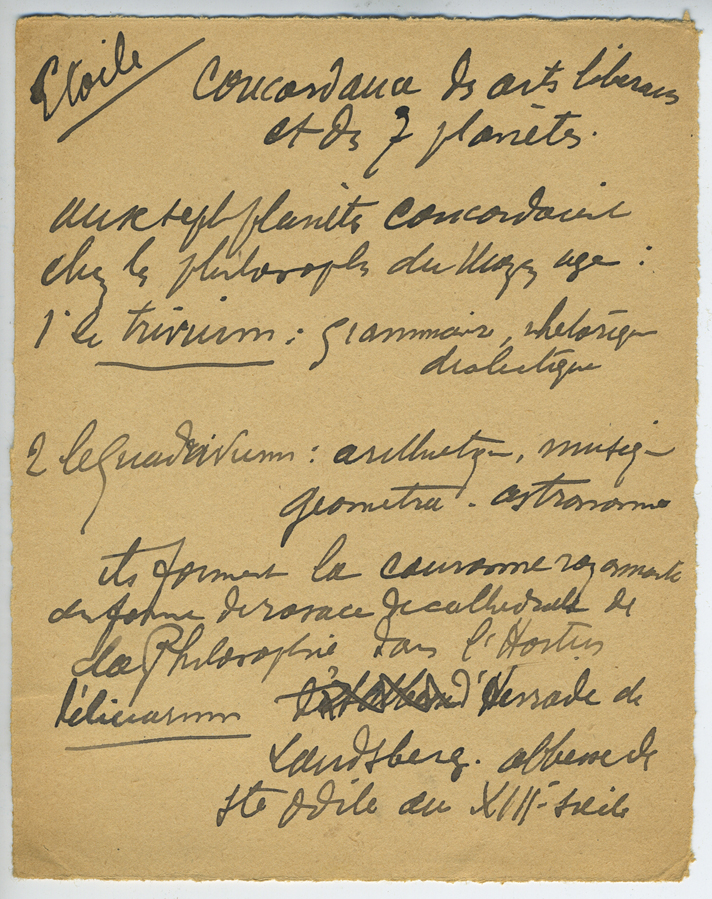 Etoile
Concordance des arts libéraux
et des 7 planètes.
aux sept planètes concordaient
chez les philosophes du Moyen age :
1° le trivium : grammaire, rhétorique
dialectique
2 le Quadrivium : arithmétique, musique
géométrie - astronomie
ils forment la couronne rayonnante
en forme de rosace de cathédrale de
la Philosophie dans l'Hortus
Deliciarum d'Herrade de
Landsberg. abbesse de
Ste Odile au XIIIe siècle